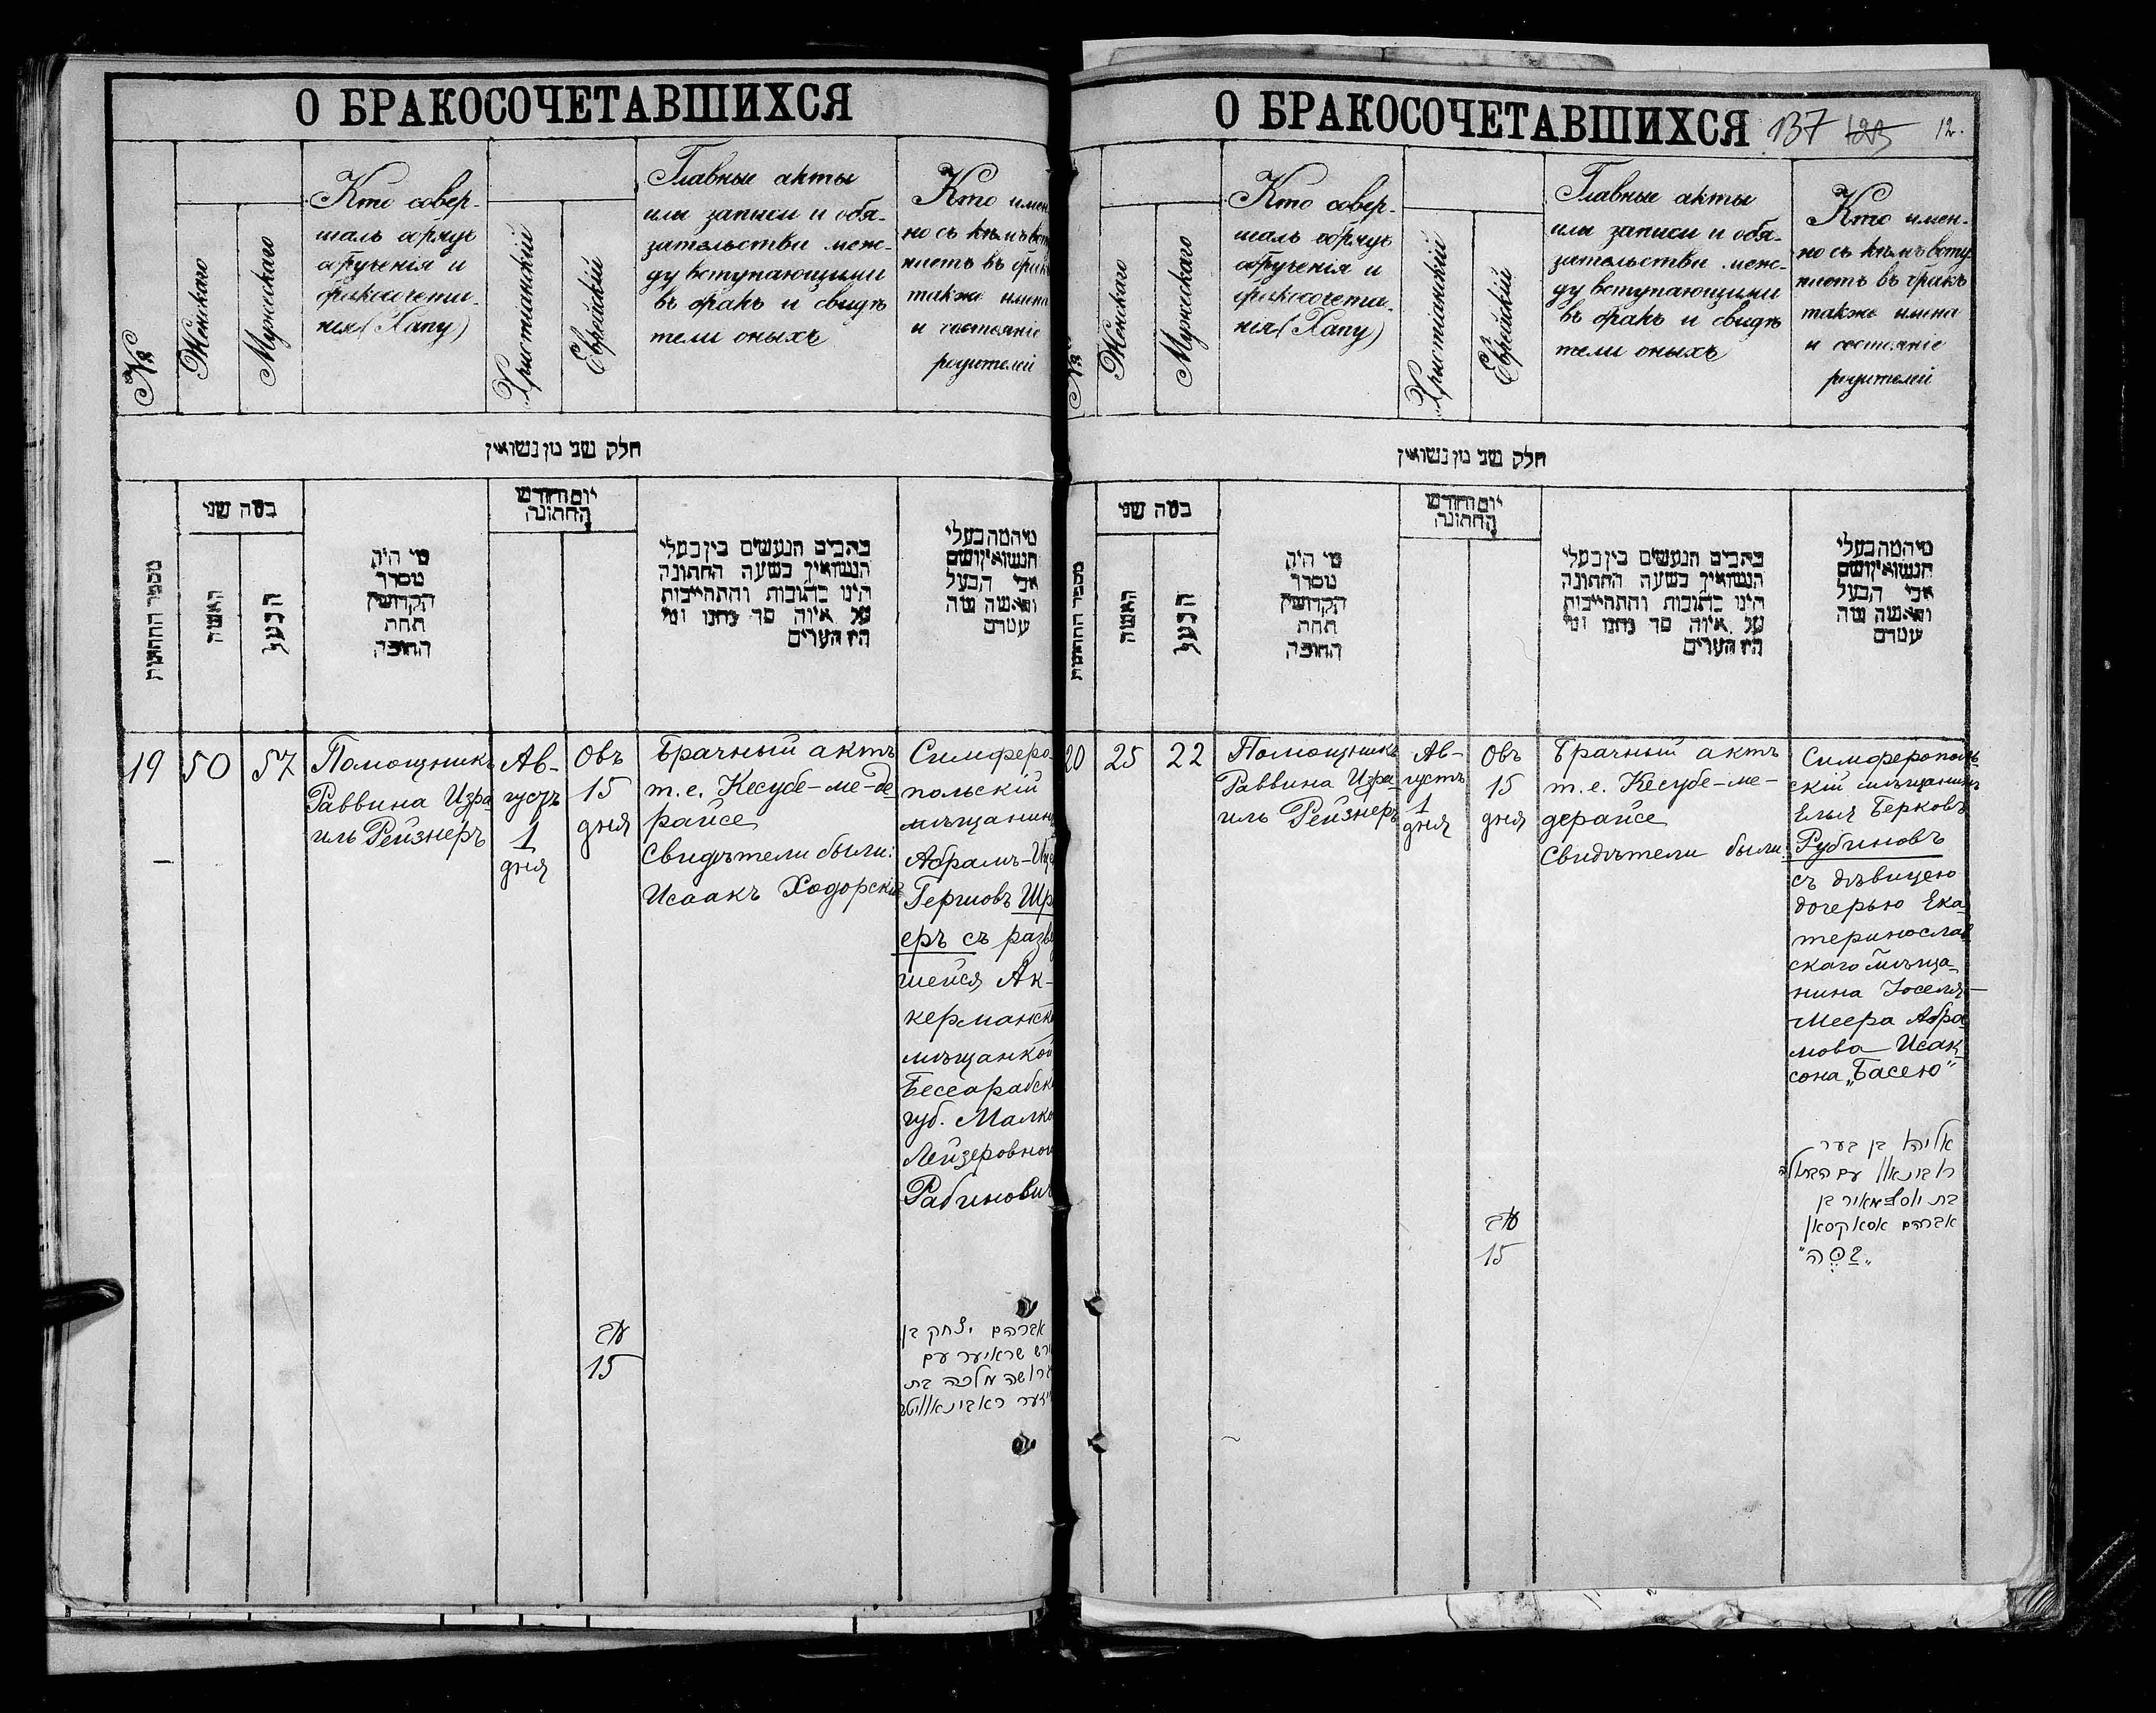 О БРАКОСОЧЕТАВШИХСЯ
№
Женскаго
Мужскаго
Кто совер-
шалъ обрядъ
обрученія и
бракосочета-
нія (Хапу)
Христіанскій
Еврейскій
Главные акты
или записи и обя-
зательства меж-
ду вступающими
въ бракъ и свидѣ
тели оныхъ
Кто имен
но съ кѣмъ всту
паетъ въ бракъ
также имена
и состояніе
родителей
חלק שני מן נשואין
מספר החתונות
כמה שני
האשה
הבעל
מי היה
מסדר
הקדושין
תחת
החופה
יום וחודש
החתונה
כתבים הנעשים בין בעלי
הנשואין בשעה החתונה
היינו כתובות והתחייבות
על איזה סך נתנו ומי
היו העדים
מי המה בעלי
הנשואין ושם
אבי הבעל
והאשה מה
עמדם
19
50
57
Помощникъ
Раввина Изра
иль Рейзнеръ
Ав-
густъ
1
дня
Овъ
15
дня
אב
15
Брачный актъ
т.е. Кесубе-ме-де
райсе
Свидѣтели были:
Исаакъ Ходорскій
Симферо-
польскій
мѣщанинъ
Абрамъ-Иц
Гершовъ Шр
еръ съ разв
шейся Ак-
керманск
мѣщанкой
Бессарабск
губ. Малко
Лейзеровной
Рабинович
אברהם יצחק בן
הירש שראיער עם
גרושה מלכה בת
לייזער ראבינאוויטב
О БРАКОСОЧЕТАВШИХСЯ
137 123 12.
№
Женскаго
Мужскаго
Кто совер-
шалъ обрядъ
обрученія и
бракосочета-
нія (Хапу)
Христіанскій
Еврейскій
Главные акты
или записи и обя-
зательства меж-
ду вступающими
въ бракъ и свидѣ
тели оныхъ
Кто имен-
но съ кѣмъ всту
паетъ въ бракъ
также имена
и состояніе
родителей
חלק שני מן נשואין
מספר החתונות
כמה שני
האשה
הבעל
מי היה
מסדר
הקדושין
תחת
החופה
יום וחודש
החתונה
כתבים הנעשים בין בעלי
הנשואין בשעה החתונה
היינו כתובות והתחייבות
על איזה סך נתנו ומי
היו העדים
מי המה בעלי
הנשואין ושם
אבי הבעל
והאשה מה
עמדם
20
25
22
Помощникъ
Раввина Изра-
иль Рейзнеръ
Ав-
густъ
1
дня
Овъ
15
дня
אב
15
Брачный актъ
т.е. Кесубе-ме-
дерайсе
Свидѣтели были:
Симферополь
скій мѣщанинъ
Елья Берковъ
Рубиновъ
съ дѣвицею
дочерью Ека-
теринослав
скаго мѣща-
нина Іоселя-
Меера Абра-
мова Исак-
сона „Басею"
אליהו בן בער
רובינאוו עם הבתולה
בת יוסף מאיר בן
אברהם אסאקסאן
„בַּסֶה"